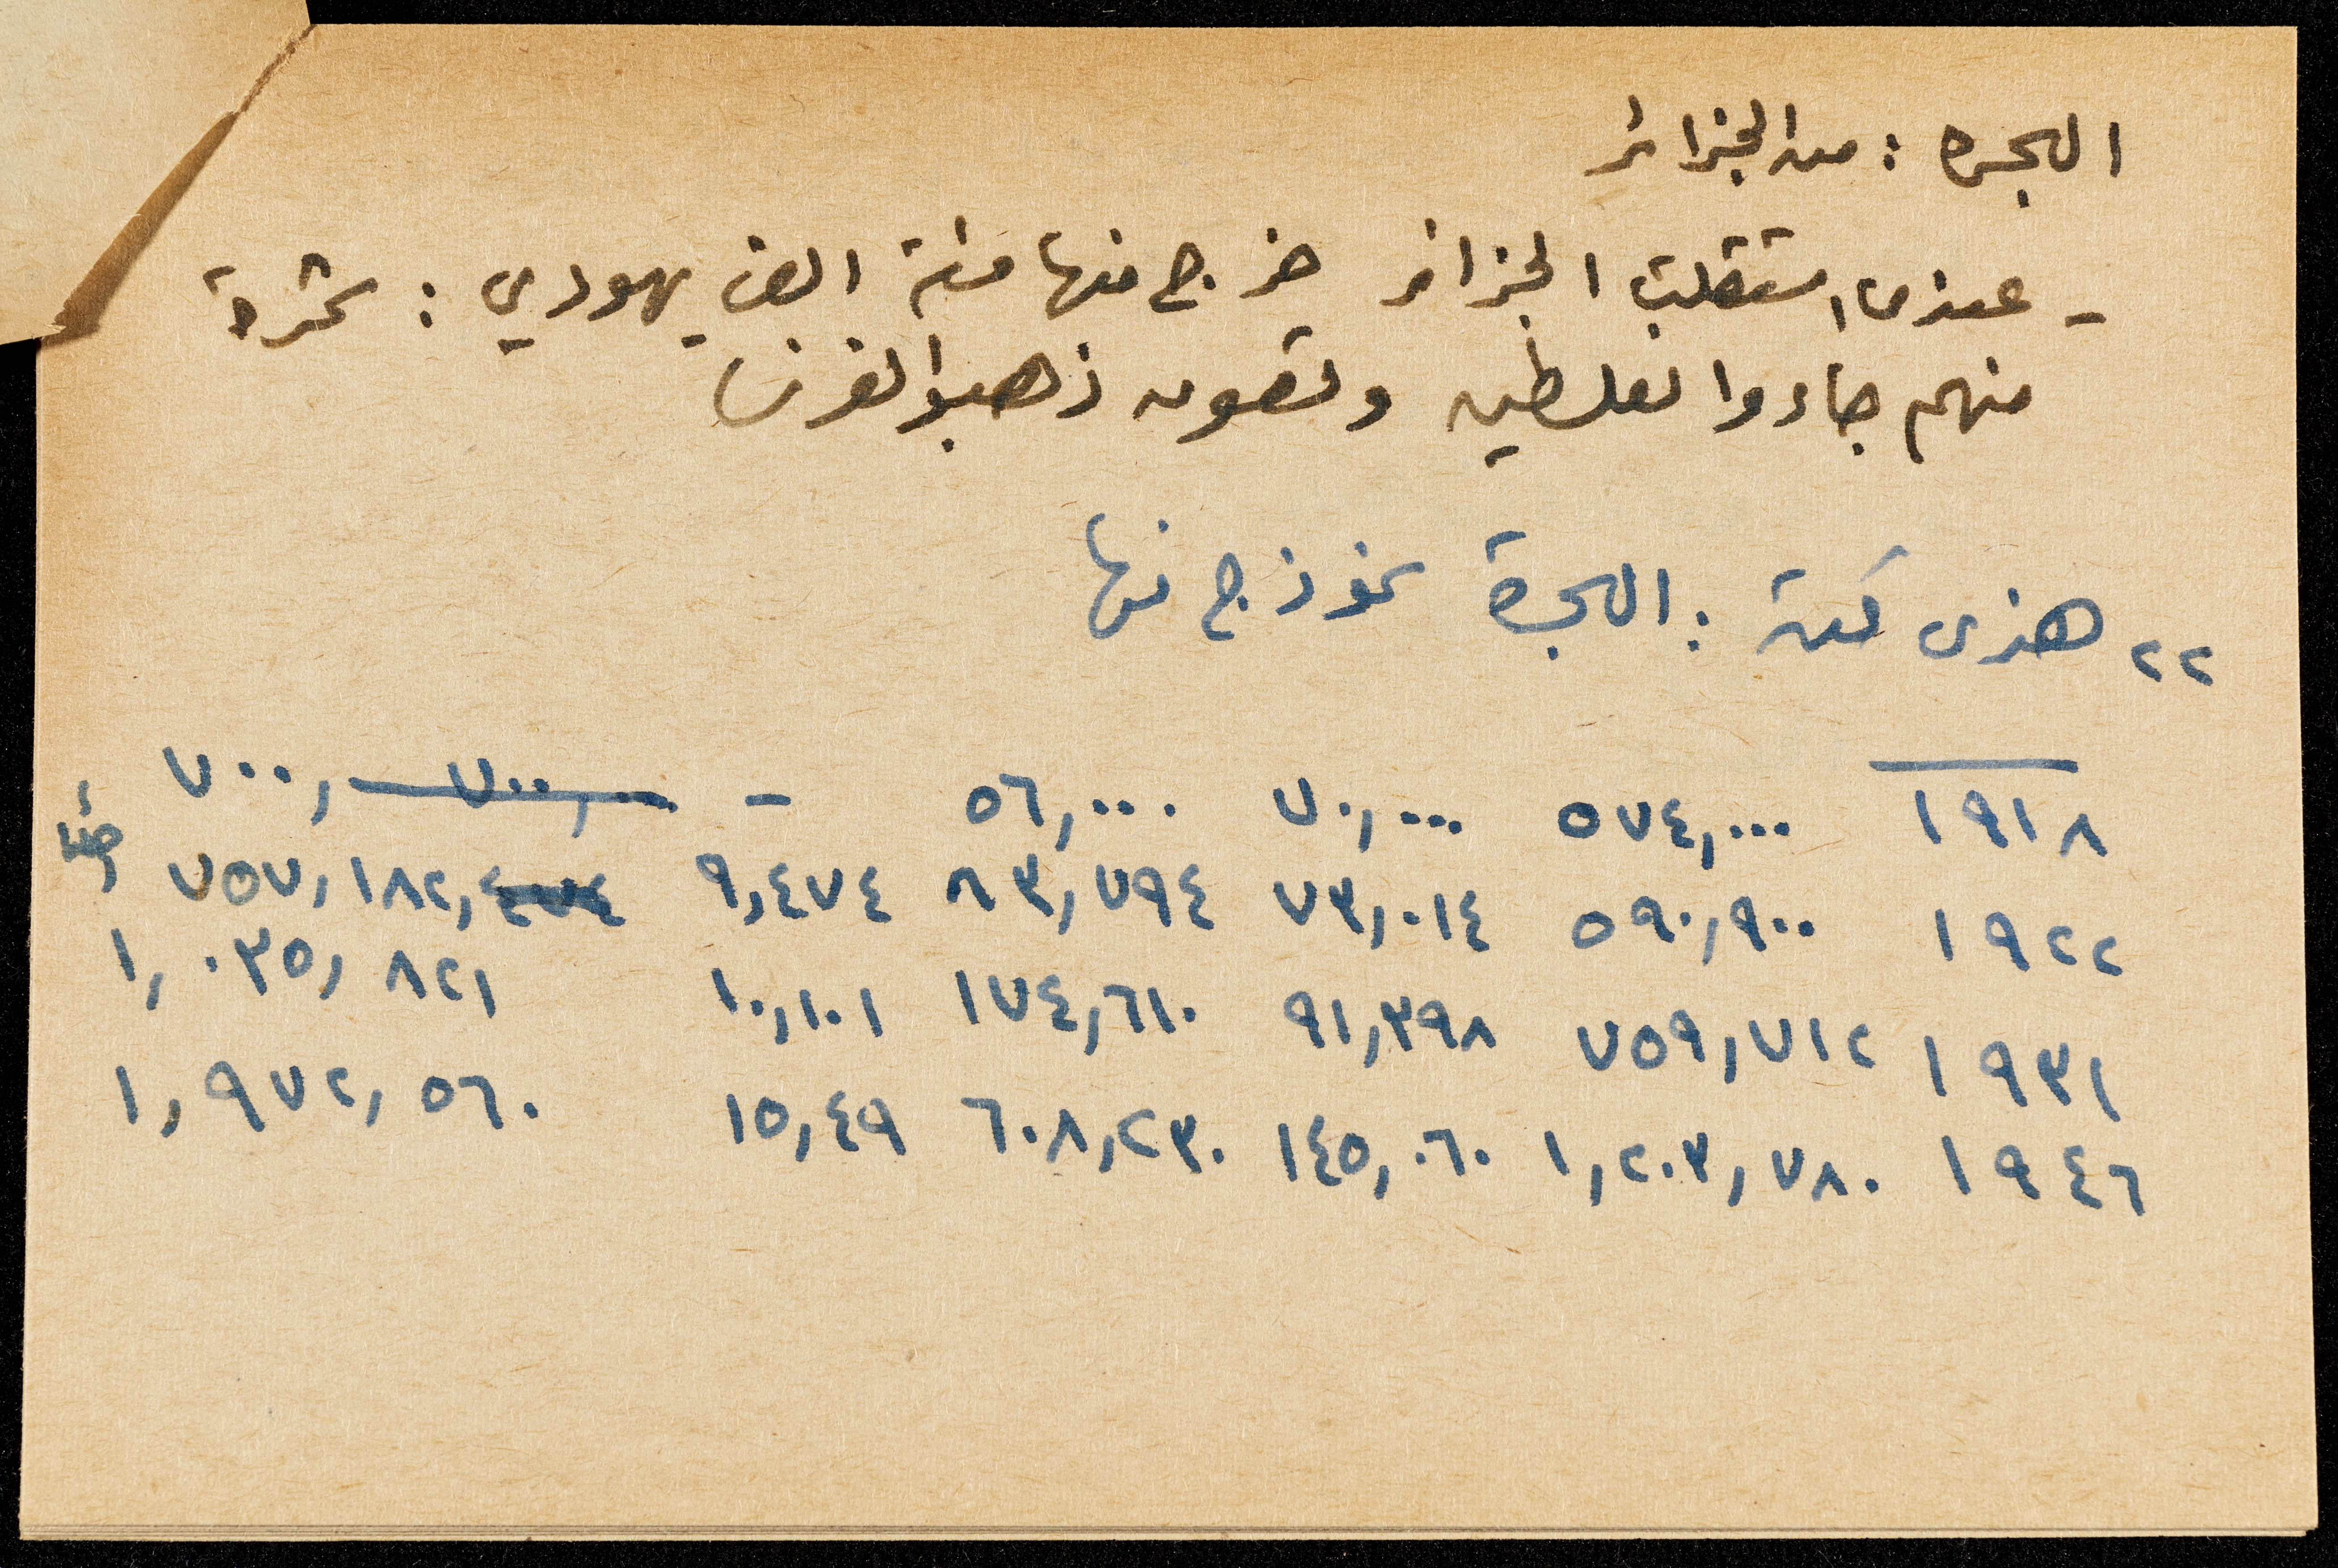 الهجره : من الجزائر
- عندما استقلت الجزائر خرج منها مئة الف يهودي : عشرة
منهم جاءوا لفلسطين وتسعون ذهبوا لفرنسا
٢٢ هنرى كتن : الهجرة نموذج منها
١٩١٨ ٥٧٤,٠٠٠ ٧٠,٠٠٠ ٥٦,٠٠٠ - ٧٠٠,٠٠٠ ٧٠٠,
١٩٢٢ ٥٩٠,٩٠٠ ٧٣,٠١٤ ٨٣,٧٩٤ ٩,٤٧٤ ٧٥٧,١٨٢,
١٩٣١ ٧٥٩,٧١٢ ٩١,٣٩٨ ١٧٤,٦١٠ ١٠,١٠١ ١,٠٣٥,٨٢١
١٩٤٦ ١,٢٠٣,٧٨٠ ١٤٥,٠٦٠ ٦٠٨,٢٣٠ ١٥,٤٩ ١,٩٧٢,٥٦٠